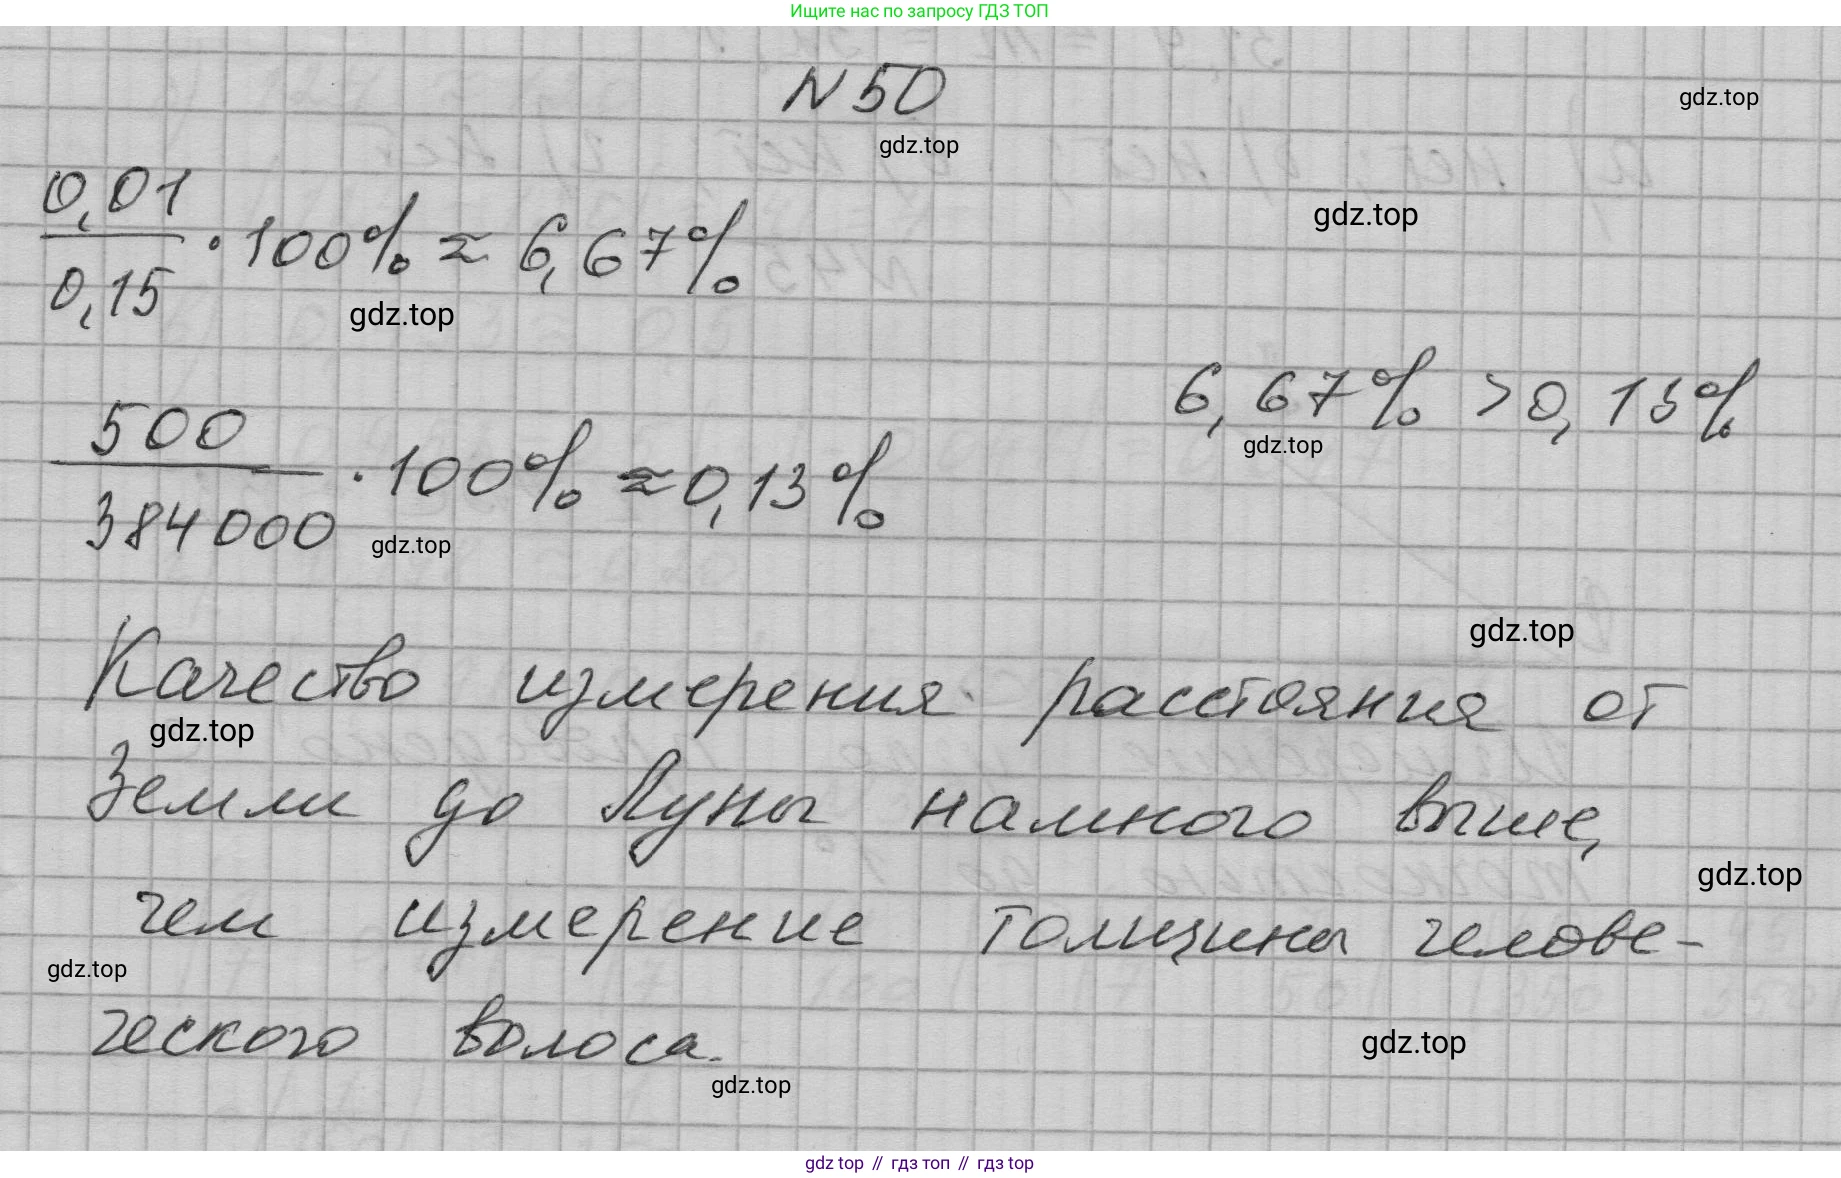 Ищите нас по запросу ГДЗ ТОП
N 50
gdz.top
gdz.top
0,01
0,15
· 100% ≈ 6,67%
gdz.top
gdz.top
500
384000
· 100% ≈ 0,13%
gdz.top
6,67% > 0,13%
gdz.top
gdz.top
Качество измерения расстояния от
gdz.top
Земли до Луны намного выше,
gdz.top
чем измерение толщины челове-
gdz.top
ческого волоса.
gdz.top
gdz.top
gdz top // гдз топ // гдз top